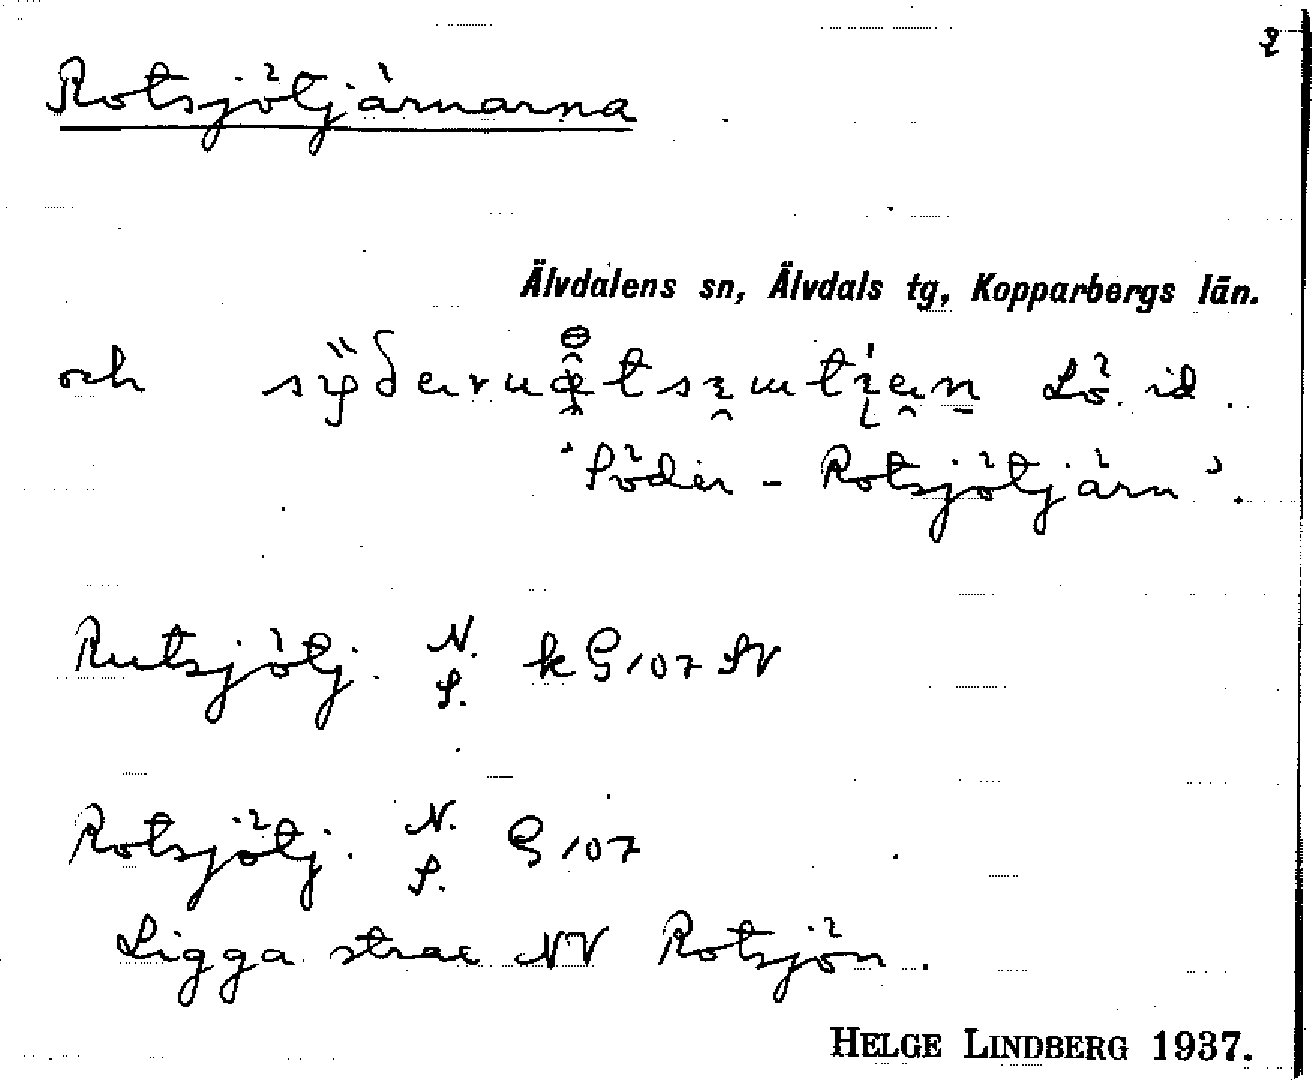 2
Rotsjötjärnarna
Älvdalens sn, Älvdals tg, Kopparbergs län.
och Lö. id.
'Söder-Rotsjötjärn'.
Rutsjötj. N. S. kG107 SV
Rotsjötj. N. S. G107
Ligga strax NV Rotsjön.
HELGE LINDBERG 1937.